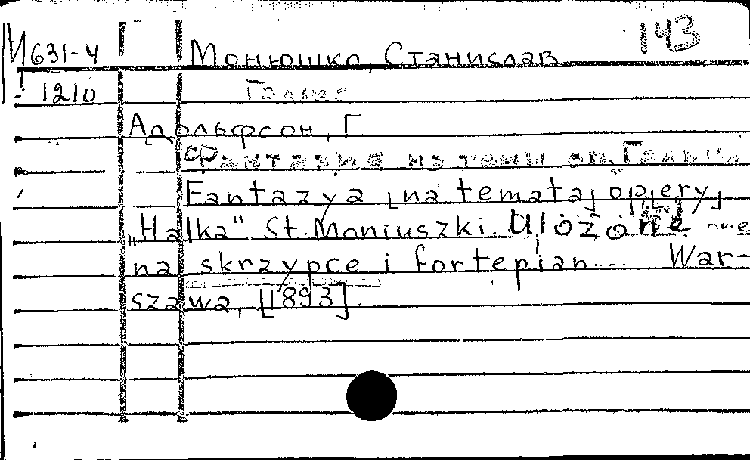 143
М631-4 Монюшко, Станислав
1210 Галька
Адольфсон, Г
Фантазия на темы оп. Галька
Fantazya [na temata] opery
„Halka" St. Moniuszki. Ułożone
na skrzypce i fortepian War-
szawa, [1893].